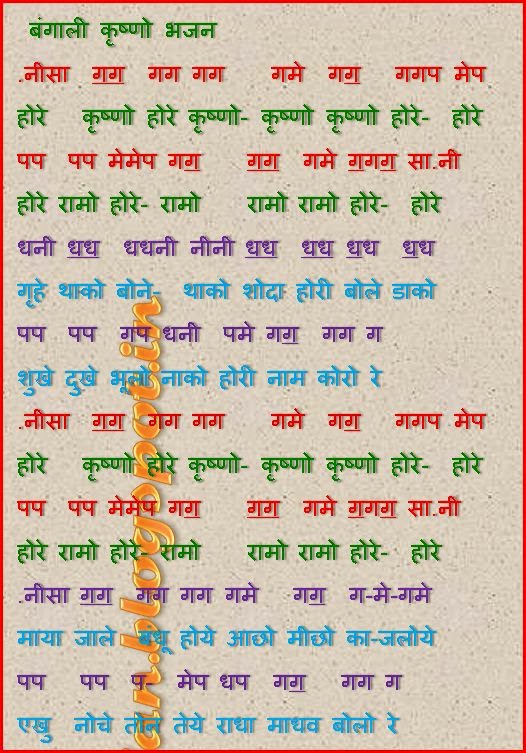 बंगाली कृष्णो भजन
.नीसा गग गग गग गमे गग गगप मेप
होरे कृष्णो होरे कृष्णो- कृष्णो कृष्णो होरे- होरे
पप पप मेमेप गग गग गमे गगग सा.नी
होरे रामो होरे- रामो रामो रामो होरे- होरे
धनी धध धधनी नीनी धध धध धध धध
गृहे थाको बोने- थाको शोदा होरी बोले डाको
पप पप गप धनी पमे गग गग ग
शुखे दुखे भूलो नाको होरी नाम कोरो रे
.नीसा गग गग गग गमे गग गगप मेप
होरे कृष्णो होरे कृष्णो- कृष्णो कृष्णो होरे- होरे
पप पप मेमेप गग गग गमे गगग सा.नी
होरे रामो होरे- रामो रामो रामो होरे- होरे
.नीसा गग गग गग गमे गग ग-मे-गमे
माया जाले बधू होये आछो मीछो का-जलोये
पप पप प- मेप धप गग गग ग
एखु नोचे तोन तेये राधा माधव बोलो रे
ar.blogspot.in